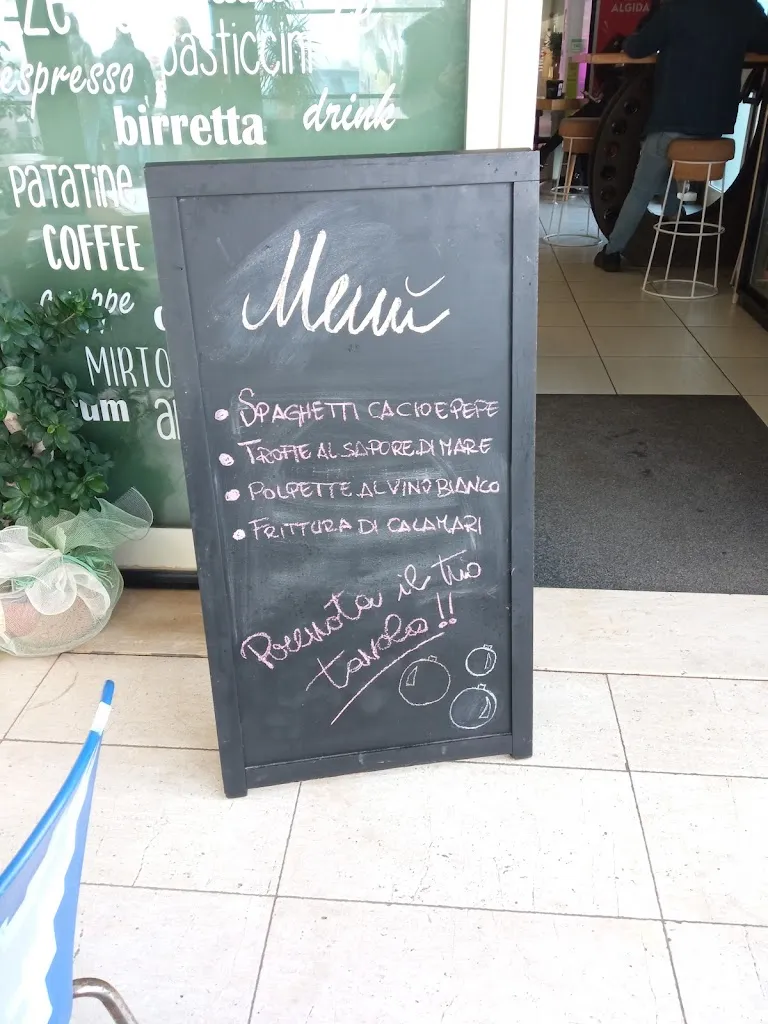 pasticcini
espresso
birretta
drink
PATATINE
COFFEE
MIRTO
ALGIDA
Menù
• SPAGHETTI CACIO E PEPE
• TROFIE AL SAPORE DI MARE
• POLPETTE AL VINO BIANCO
• FRITTURA DI CALAMARI
Prenota il tuo
tavolo!!